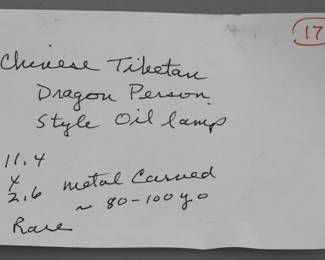 17
Chinese Tibetan
Dragon Person
Style Oil lamp
11.4
4
2.6 metal Carved
~ 80-100 yo
Rare